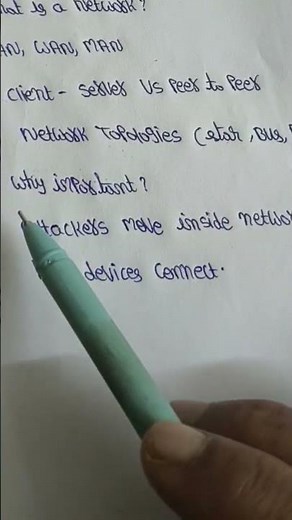 hat is a network?
AN, WAN, MAN
Client - Server Vs Peer to Peer
Network Topologies (star, Bus,
Why important?
ttackers move inside networ
devices connect.